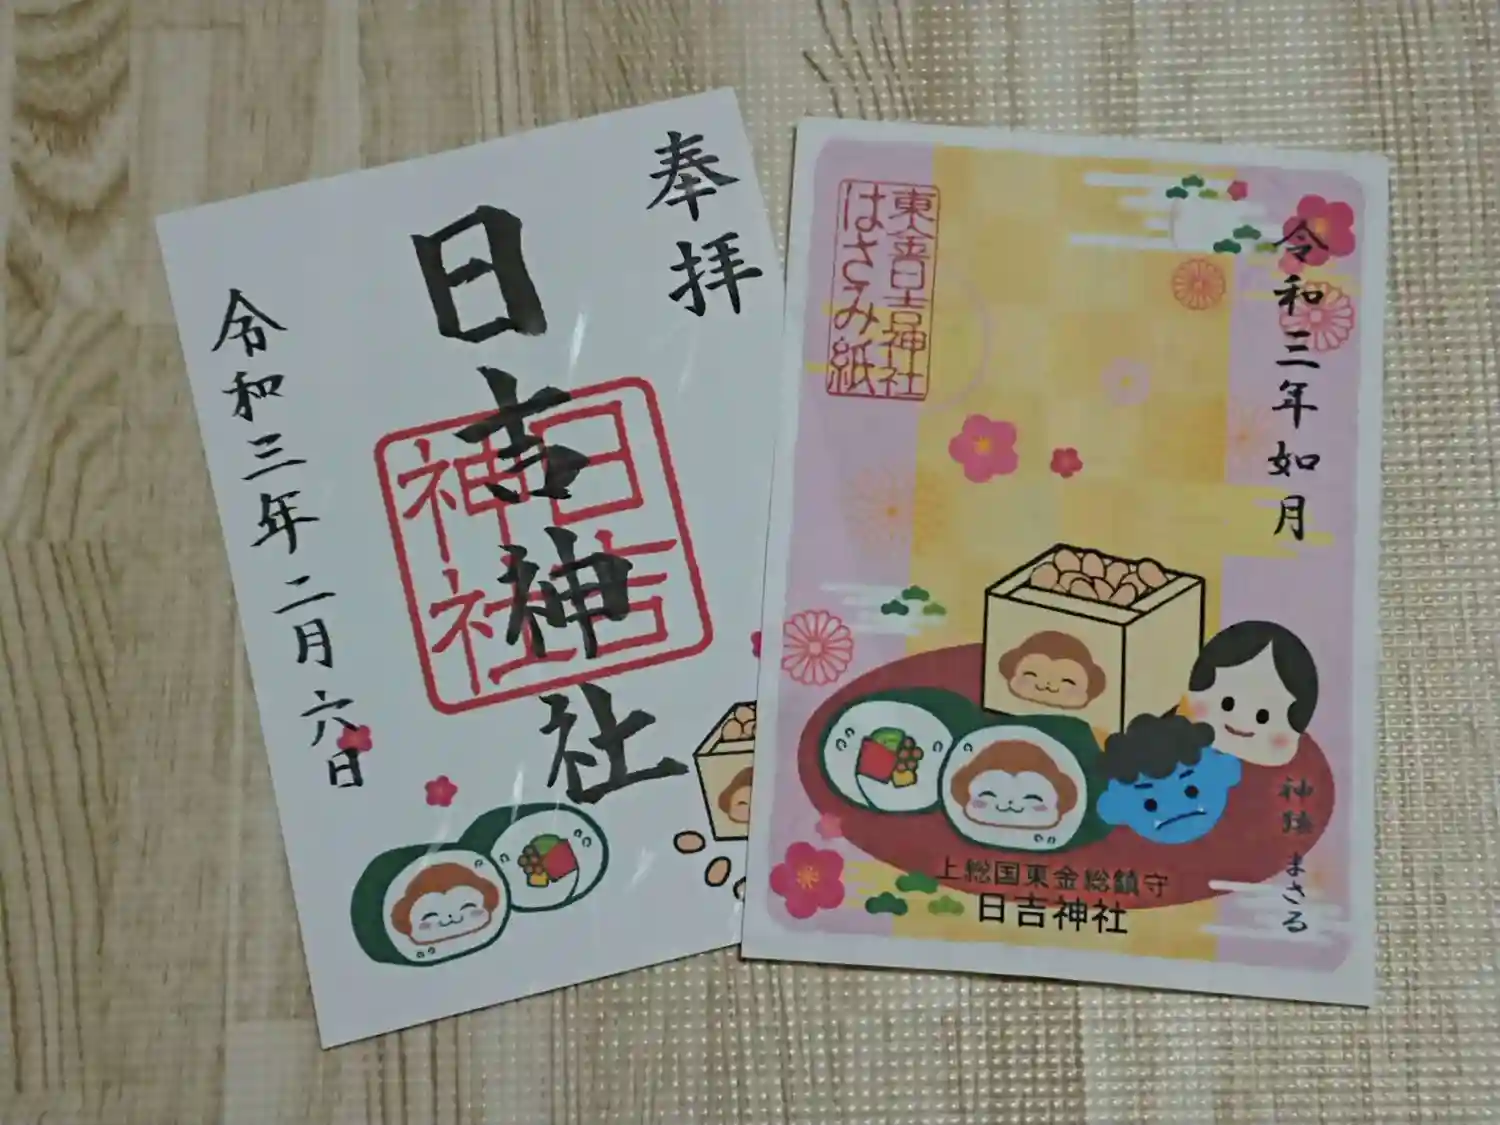 奉拝
日吉神社
日吉
神社
令和三年二月六日
令和三年如月
東金日吉神社
はさみ紙
神猿 まさる
上総国東金総鎮守
日吉神社